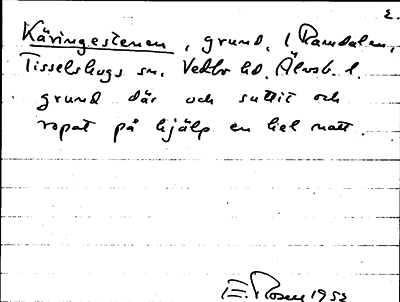 2.
Käringestenen, grund, i Ramdalen,
Tisselskogs sn. Vedbo hd. Älvsb. l.
grund där och suttit och
ropat på hjälp en hel natt.
E. Rosen 1952